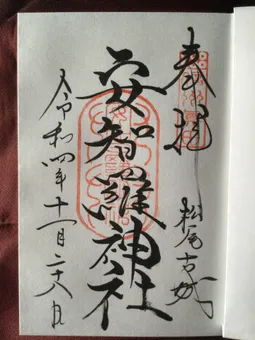 奉拝
松尾古城
安智羅神社
令和四年十一月二十八日